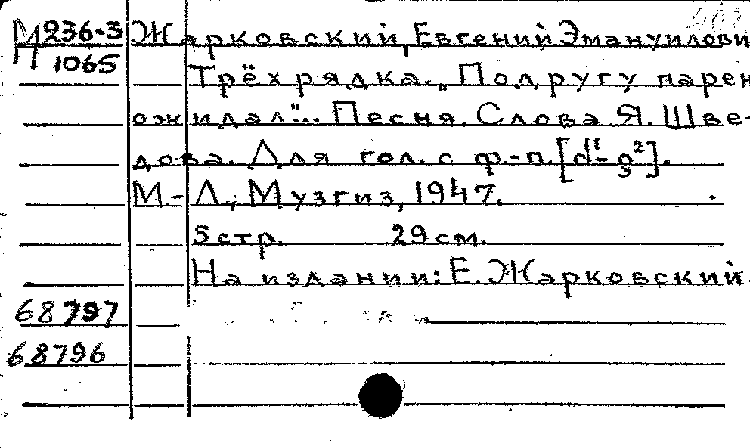 М 236-3 Жарковский, Евгений Эмануилови
1065 Трёхрядка. „Подругу парен
ожидал"... Песня. Слова Я. Шве-
дова. Для гол. с ф.-п.
М.-Л., Музгиз, 1947.
5 стр. 29 см.
На издании: Е. Жарковский.
68797
68796